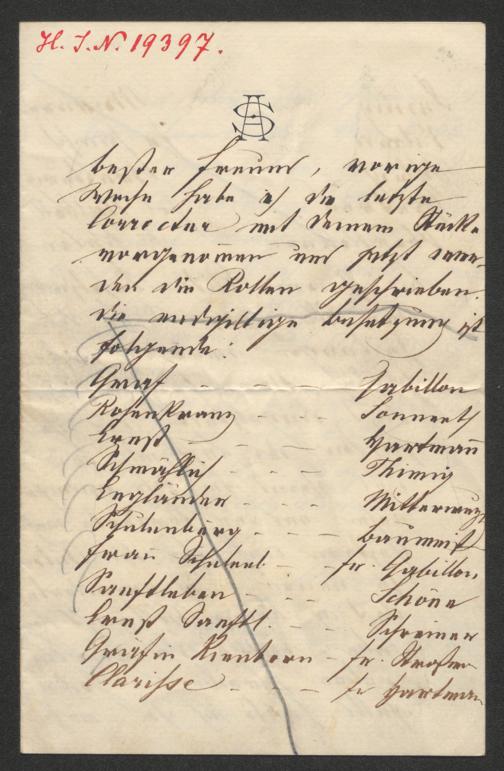 H. I. N. 19397.
bester Freund, vorige
Woche habe ich die letzte
Correctur mit deinem Stücke
vorgenommen und jetzt wer-
den die Rollen geschrieben.
die endgiltige Besetzung ist
folgende:
Graf - - - - Gabillon
Rosenkranz - - - Sonnenth
Ernst - - - - Hartmann
Schmählich - - - Thimig
Engländer - - - Mitterwurz
Schulenberg - - - Baumeist
Frau Schulenb - - fr. Gabillon
Sanftleben - - - Schöne
Ernst Sanftl. - - - Schreiner
Gräfin - fr.
Clarisse - - - fr Hartman